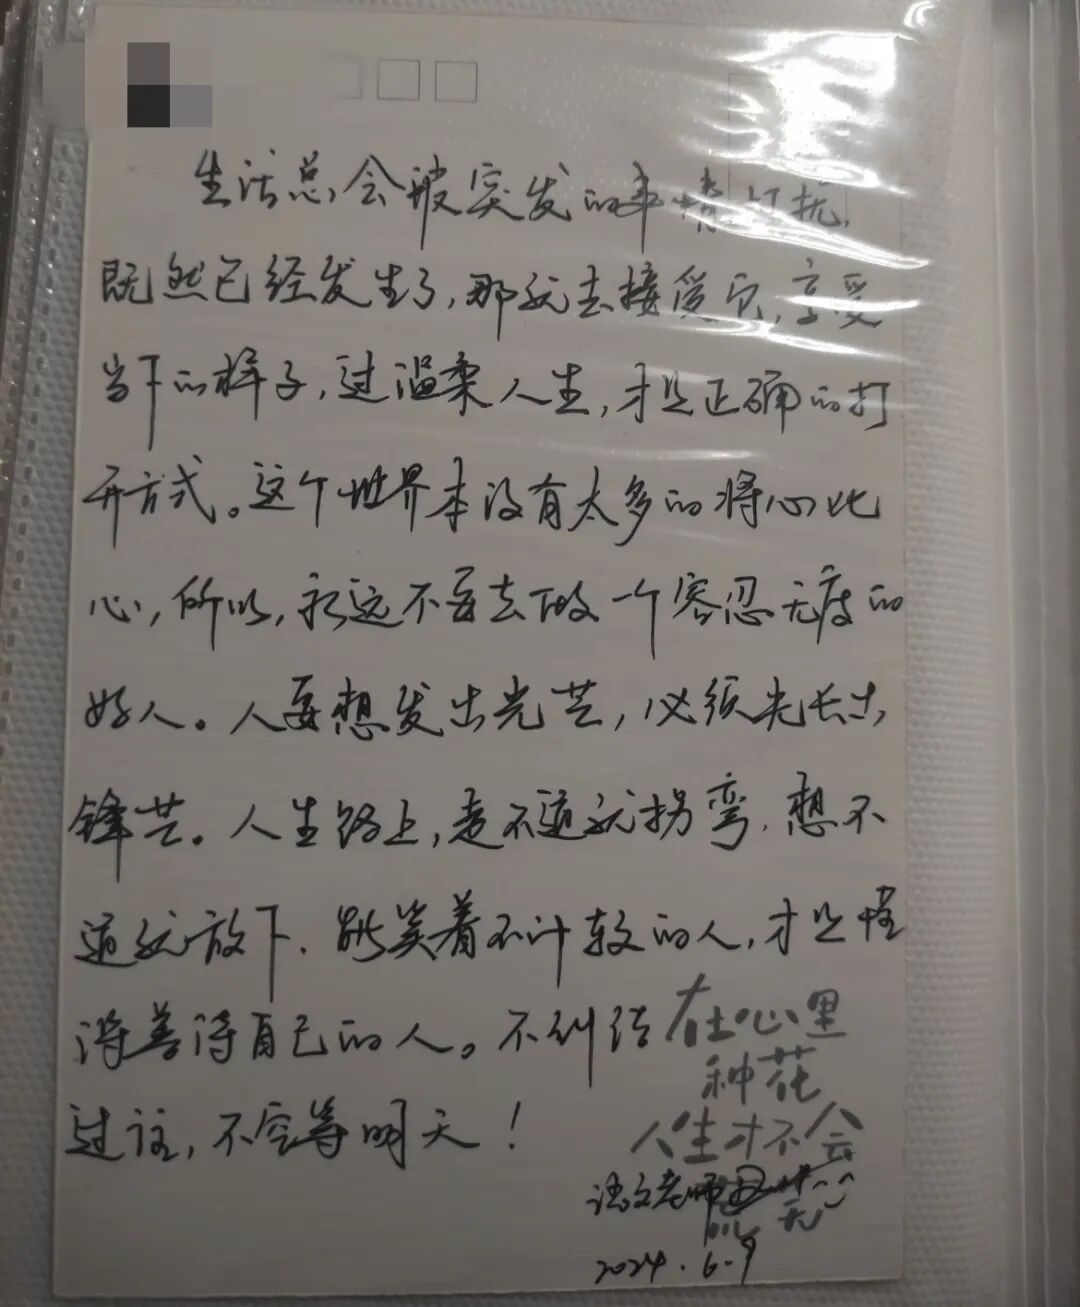 生活总会被突发的事情打扰,
既然已经发生了,那就去接受它,享受
当下的样子,过温柔人生,才是正确的打
开方式。这个世界本没有太多的将心比
心,所以,永远不要去做一个容忍无度的
好人。人要想发出光芒,必须先长出
锋芒。人生路上,走不通就拐弯,想不
通就放下,能笑着不计较的人,才是懂
得善待自己的人。不纠结
过往,不空等明天!
在心里
种花
人生才不会
荒芜
语文老师
2024.6.9